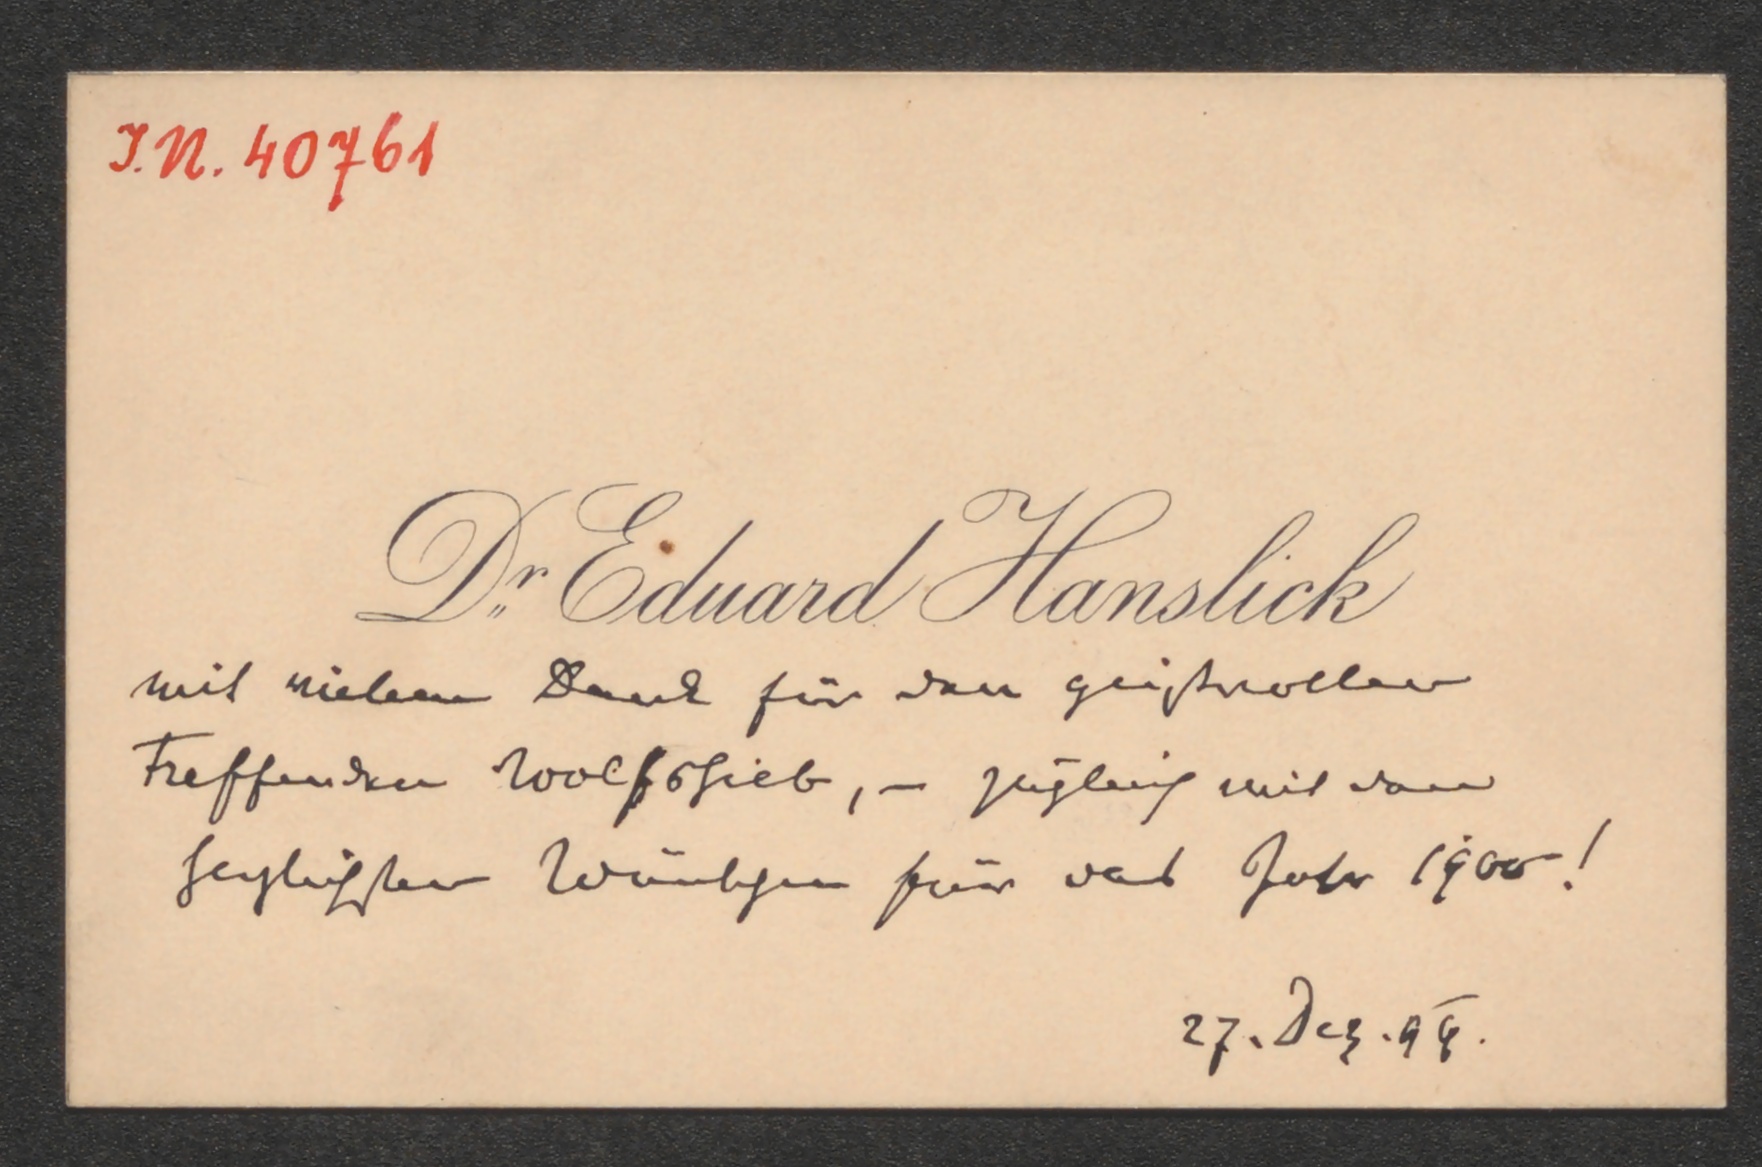 I.N. 40761
Dr. Eduard Hanslick
mit vielem Dank für den geistvollen
treffenden Wolfshieb, – zugleich mit den
herzlichsten Wünschen für das Jahr 1900!
27. Dez. 99.